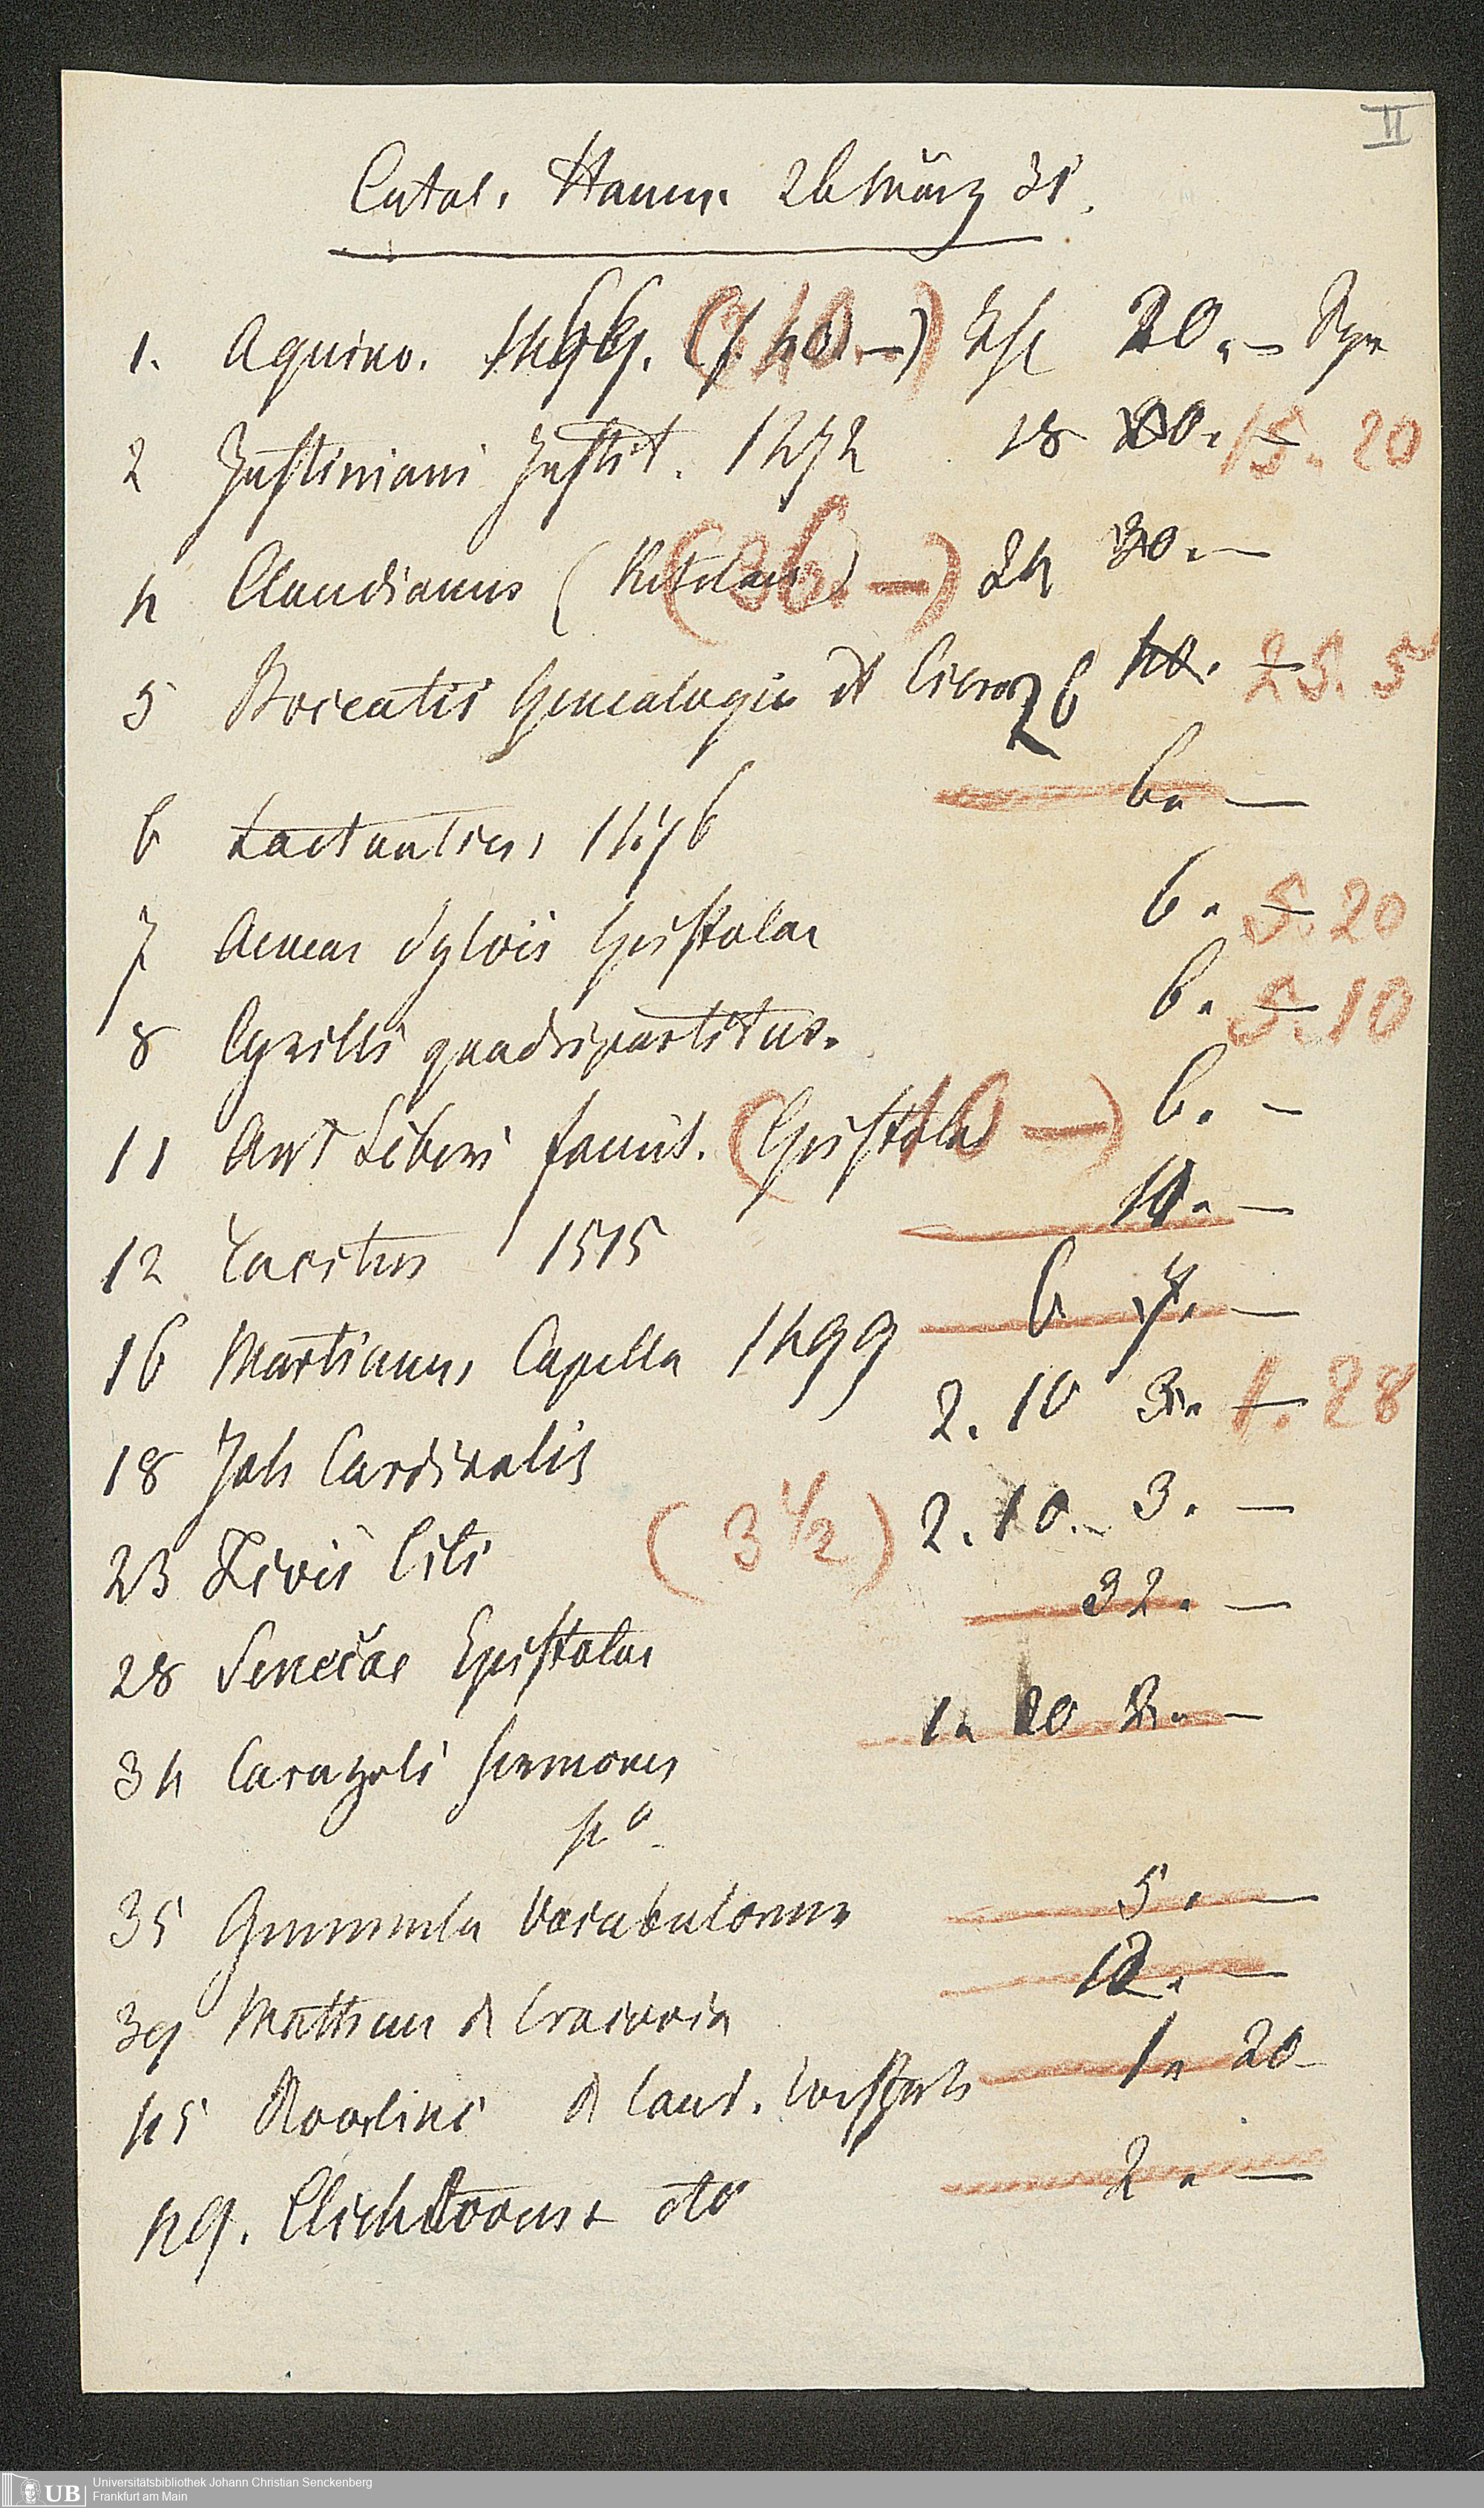 II
Catal. Hamm. 26 März 31.
1. Aquino. 1469. (f 40. —) Thl 20. — Sgr
2 Justiniani Justit. 1472 18 20. — 15. 20
4 Claudianus ( (36. —) 24 30. —
5 Boccatii Genealogia et Cicero 26 40. — 25. 5
6 Lactantius 1476 6. —
7 Aeneae Sylvii Epistolae 6. — 5. 20
8 Cyrilli quadripartitus. 6. — 5. 10
11 Ant Liberi famil. Epistolae (10 —) 6. —
12 Tacitus 1515 —
16 Martianus Capella 1499 6 7. —
18 Joh Cardinalis 2. 10 3. — 1. 28
23 Livii (3 1/2) 2. 10. 3. —
28 Senecae Epistolae 32. —
34 Carazoli sermones 1. 20 —
4°
35 Gemmula Vocabulorum 5. —
39 Mattheus de Cracovia 12. —
45 de laud. 1. 20
49. Clichtoveus etc 2. —
UB
Universitätsbibliothek Johann Christian Senckenberg
Frankfurt am Main